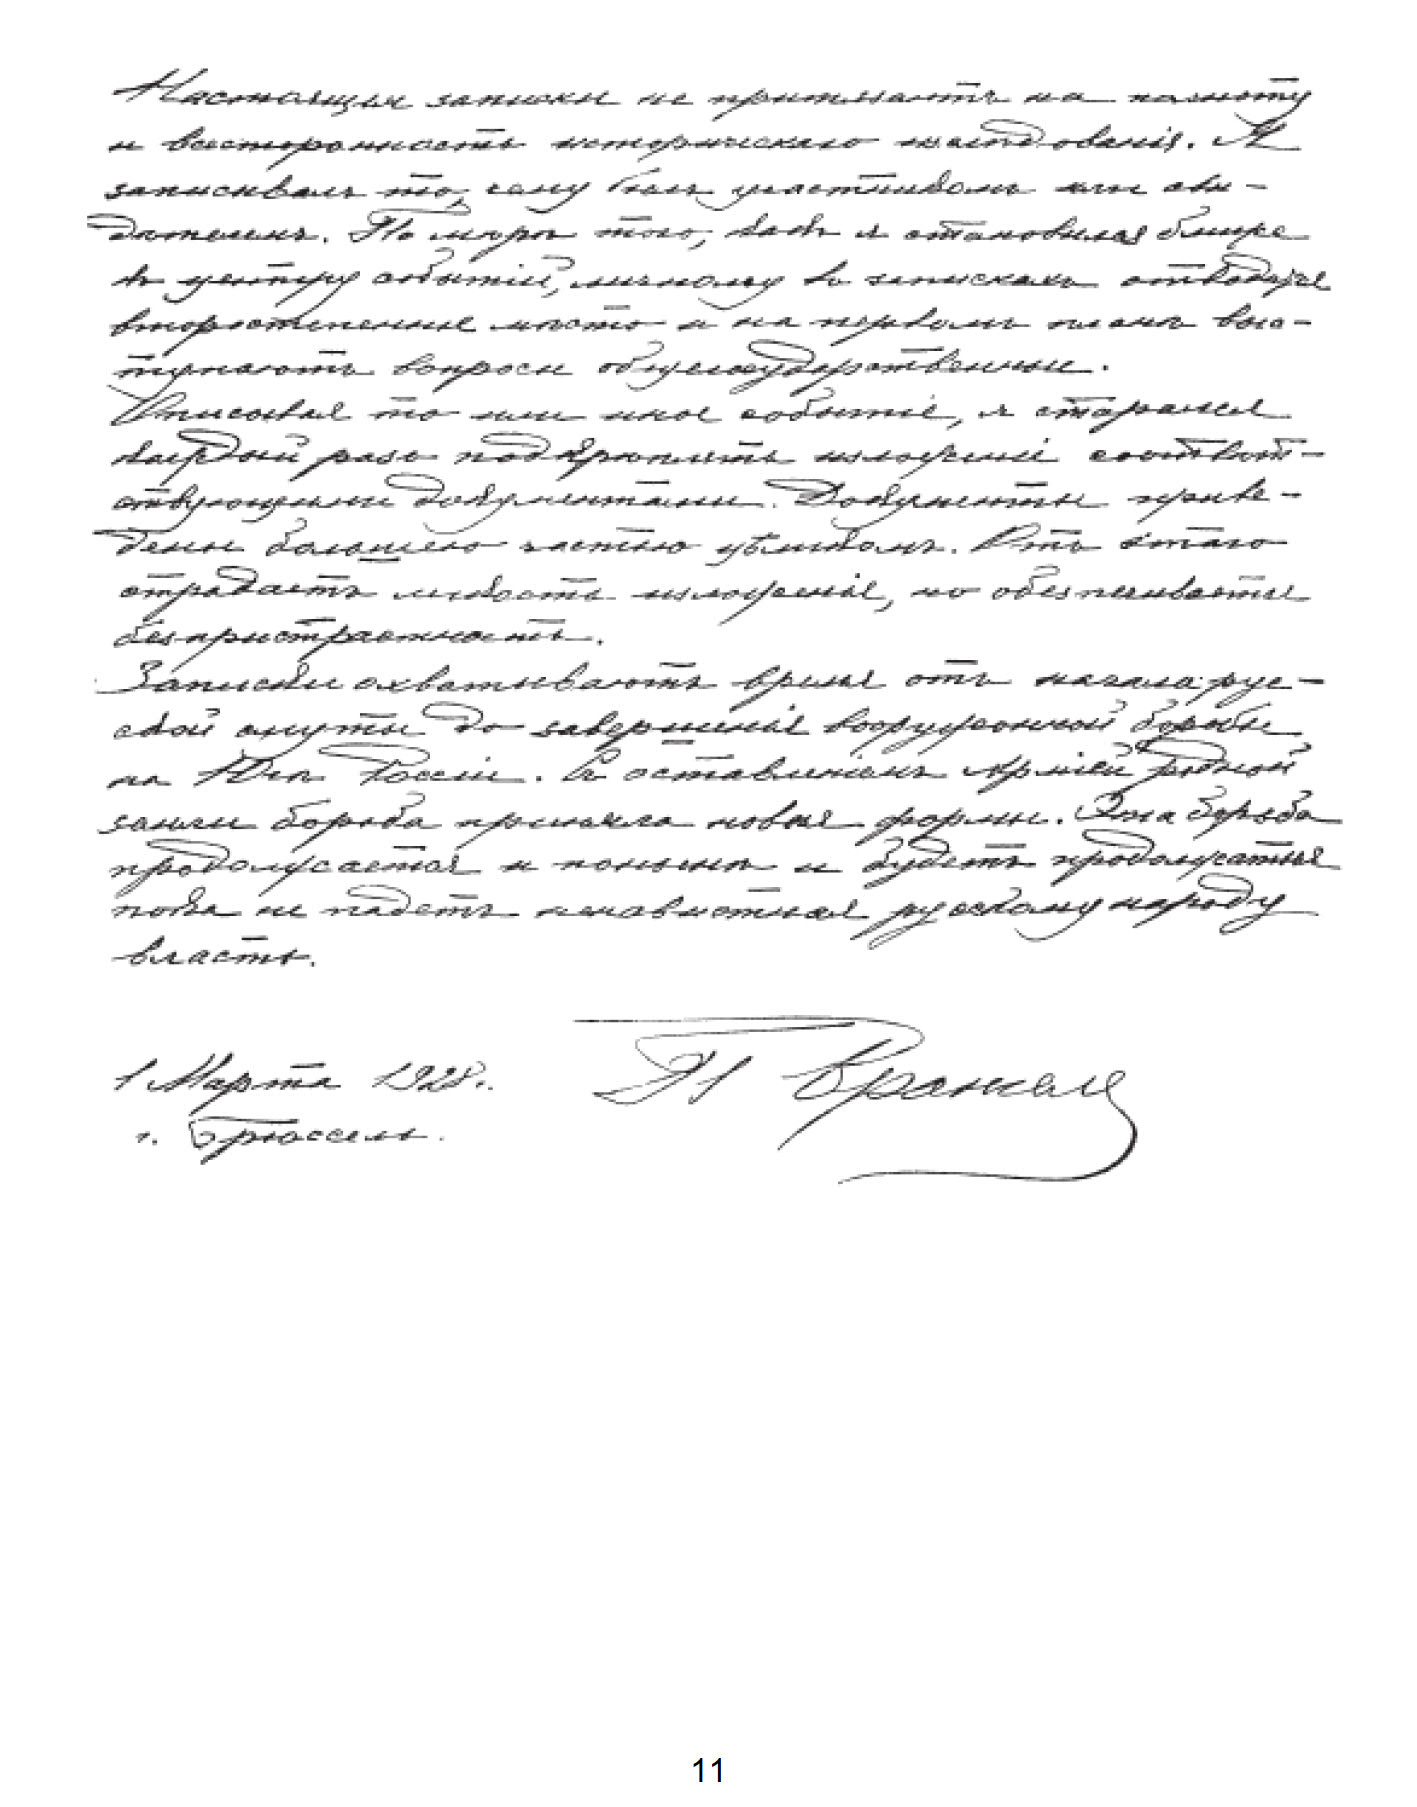 Настоящія записки не притязаютъ на полноту
и всесторонность историческаго изслѣдованія. Я
записывалъ то, чему былъ участникомъ или сви-
дѣтелемъ. По мѣрѣ того, какъ я становился ближе
къ центру событій, личному въ запискахъ отводится
второстепенное мѣсто и на первомъ планѣ выс-
тупаютъ вопросы общегосударственные.
Описывая то или иное событіе, я старался
каждый разъ подкрѣплять изложеніе соотвѣт-
ствующими документами. Документы приве-
дены большею частью цѣликомъ. Отъ этого
страдаетъ легкость изложенія, но обезпечивается
безпристрастность.
Записки охватываютъ время отъ начала рус-
ской смуты до завершенія вооруженной борьбы
на Югѣ Россіи. Съ оставленіемъ Арміей родной
земли борьба приняла новыя формы. Эта борьба
продолжается и понынѣ и будетъ продолжаться
пока не падетъ ненавистная русскому народу
власть.
1 Марта 1928.
г. Брюссель.
П Врангель
11